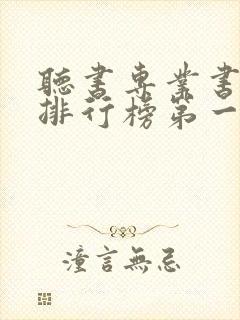 聽書專業書
排行榜第一
潼言無忌